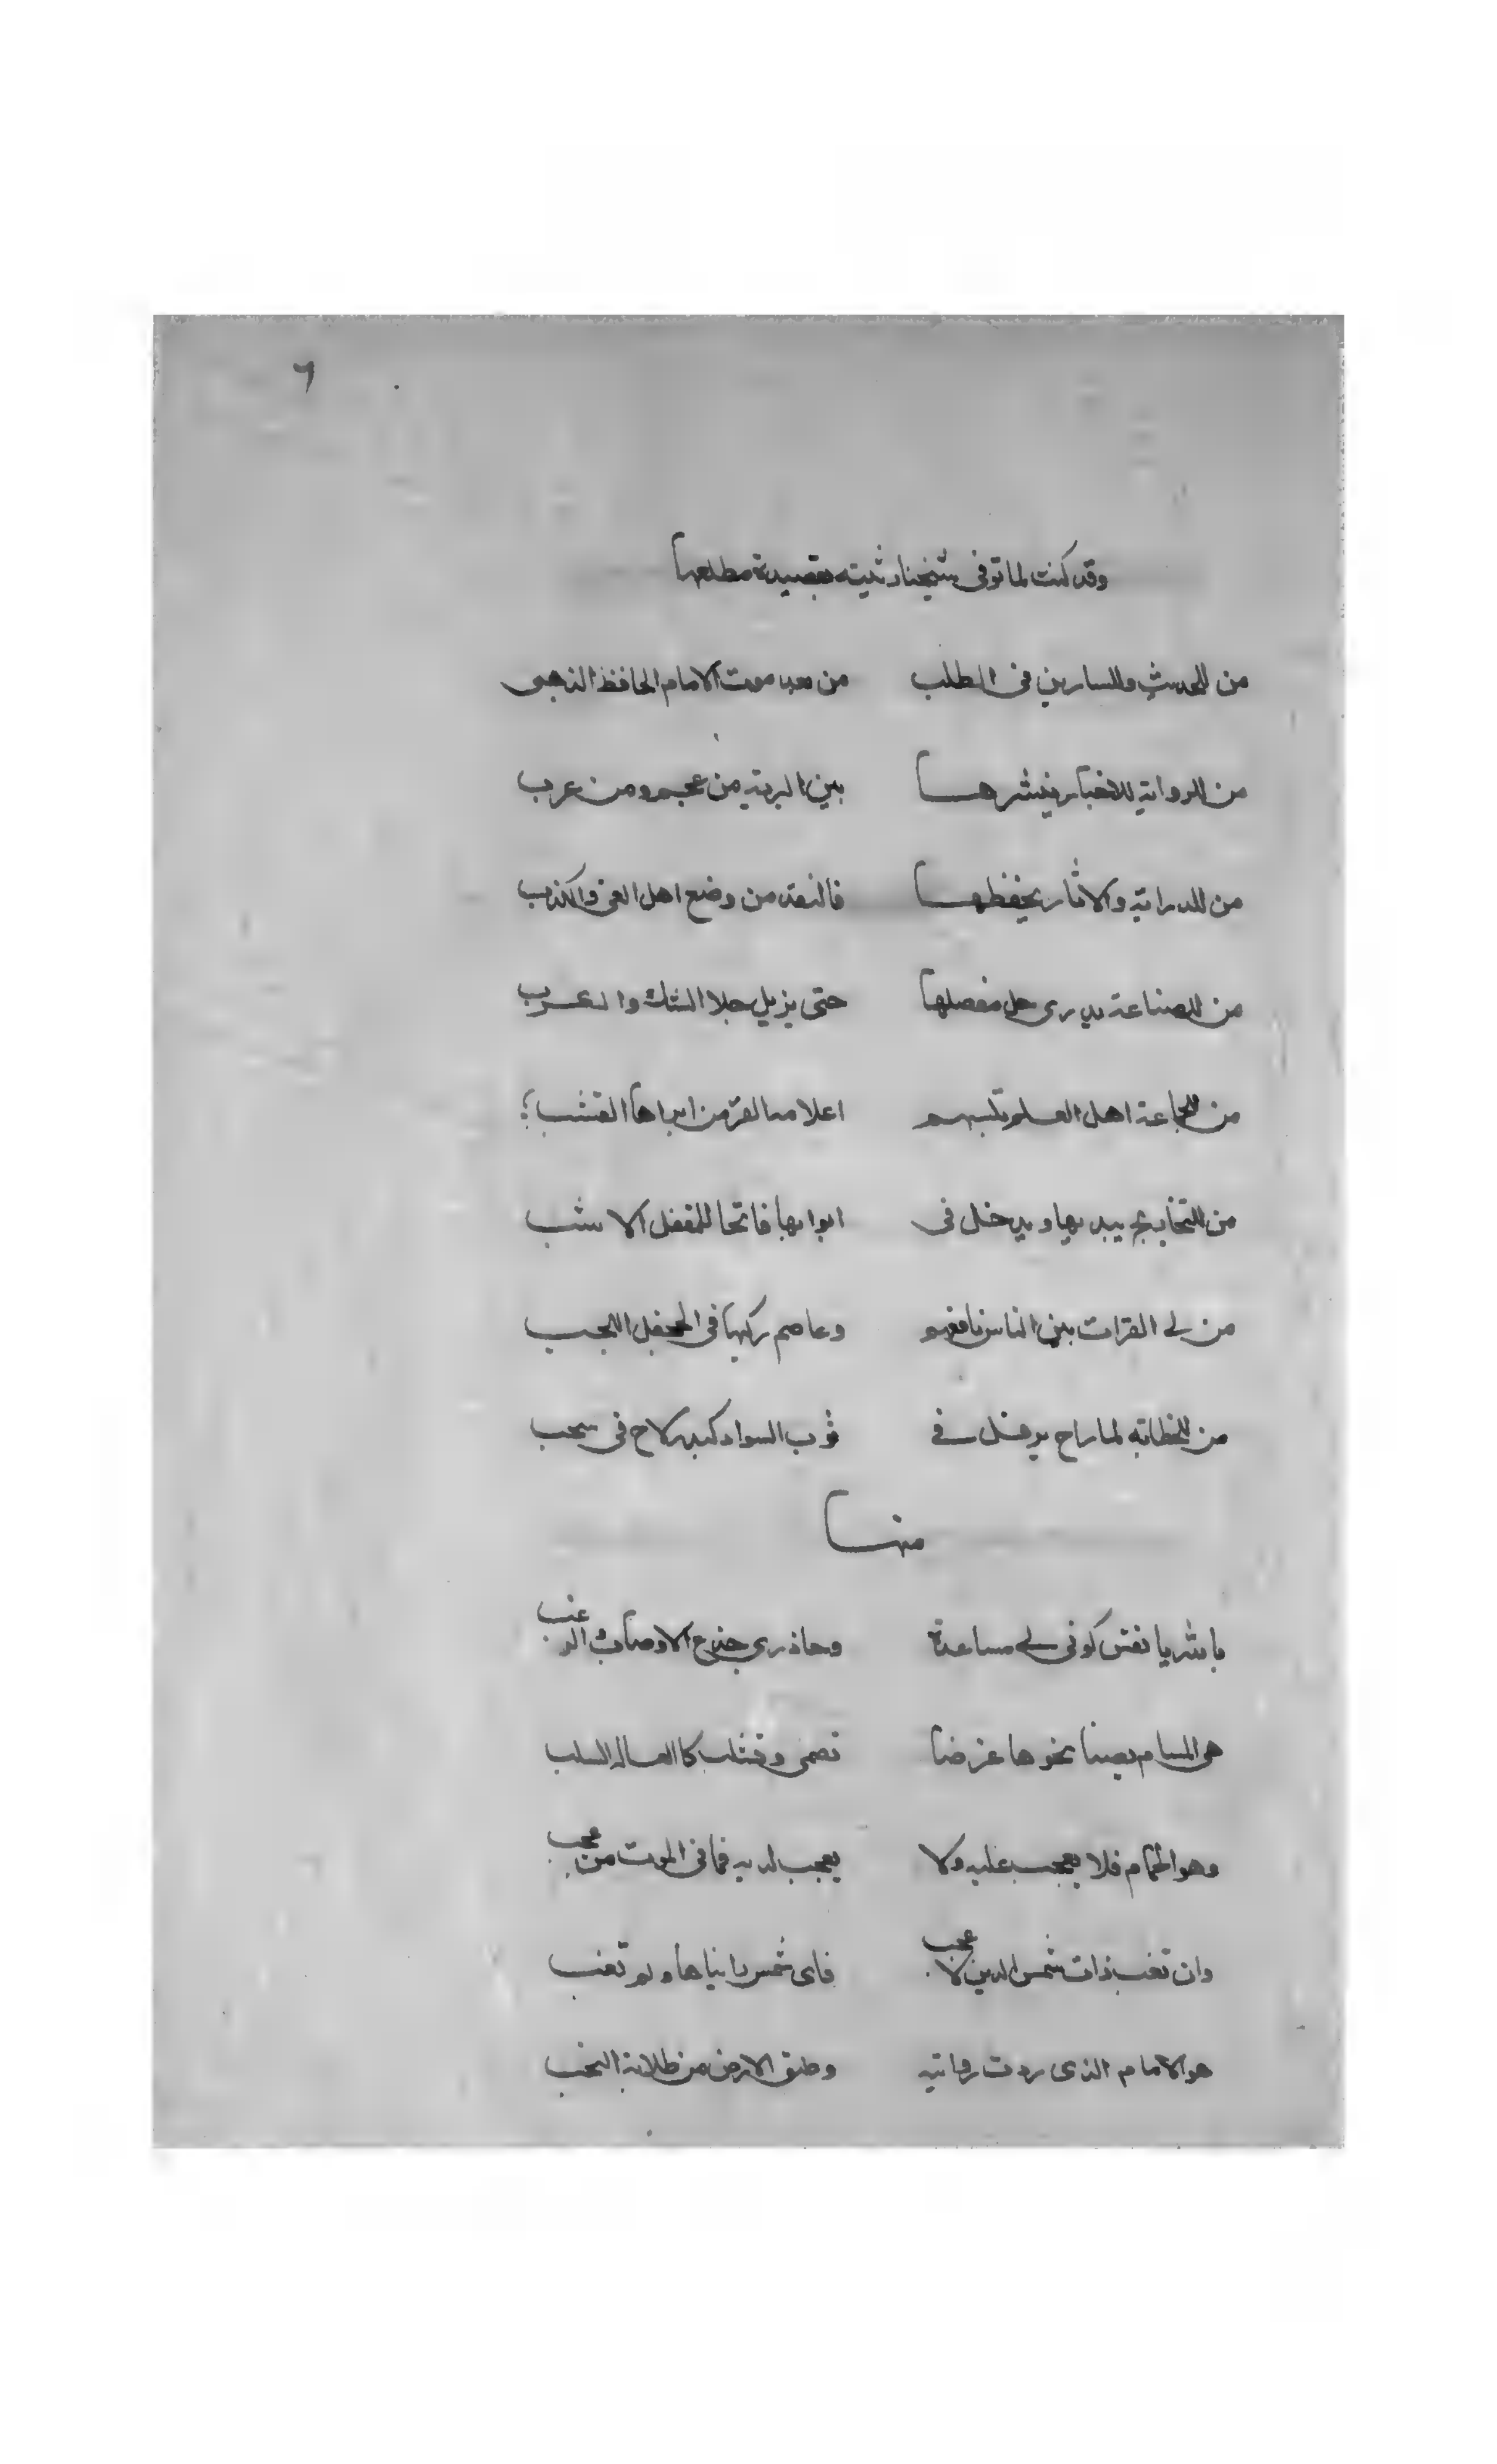 ٦
وقد كنت لما توفى شيخنا رثيته بقصيدة مطلعها
من للحديث وللسارين فى الطلب من بعد موت الامام الحافظ الذهبى
من للرواية للاخبار ينشرها بين البرية من عجم ومن عرب
من للدراية والاثار يحفظها فالنقد من وضع اهل الغى والكذب
من للصناعة يدرى حل مفصلها حتى يزيل جلا الشك والـ
من للجماعة اهل العلم تلبسهم اعلامه الغر من ابرادها القشب
من للتخاريج يبديها ويدخل فى ابوابها فاتحا للمقفل الاشب
من لى القرات بين الناس نافعهم وعاصم ركبها فى الجحفل اللجب
من للخطابة لما راح يرفل فى ثوب السواد كبدر لاح فى سحب
منها
بالله يا نفس كونى لى مساعدة وحاذرى جزع الاوصاب والرعب
هى السهام بصبنا نحوها غرضا تصمى وتسلب كالعسالة السلب
وهو الحمام فلا تعجب عليه ولا تعجب لديه فما فى الموت من عجب
وان تغب ذات شمس الدين لا عجب فاى شمس راينا ها ولم تغب
هو الامام الذى روت روايته وطبق الارض من طلابه النجب